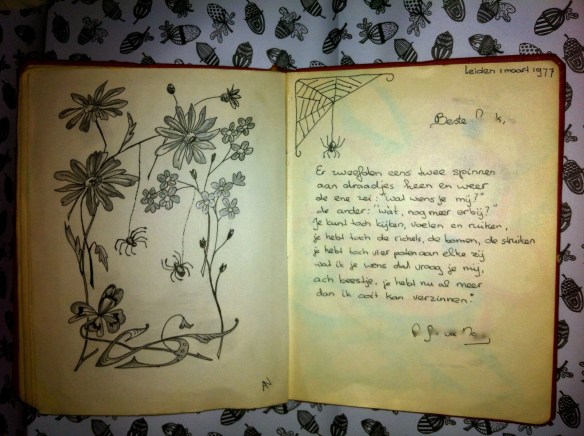 Leiden 1 maart 1977
Beste
Er zweefden eens twee spinnen
aan draadjes heen en weer
de ene zei: "wat wens je mij?"
de ander: "wàt, nog meer erbij?"
je kunt toch kijken, voelen en ruiken,
je hebt toch de richels, de bomen, de struiken
je hebt toch vier poten aan elke zij
wat ik je wens dat vraag je mij,
ach beestje, je hebt nu al meer
dan ik ooit kan verzinnen."
AV